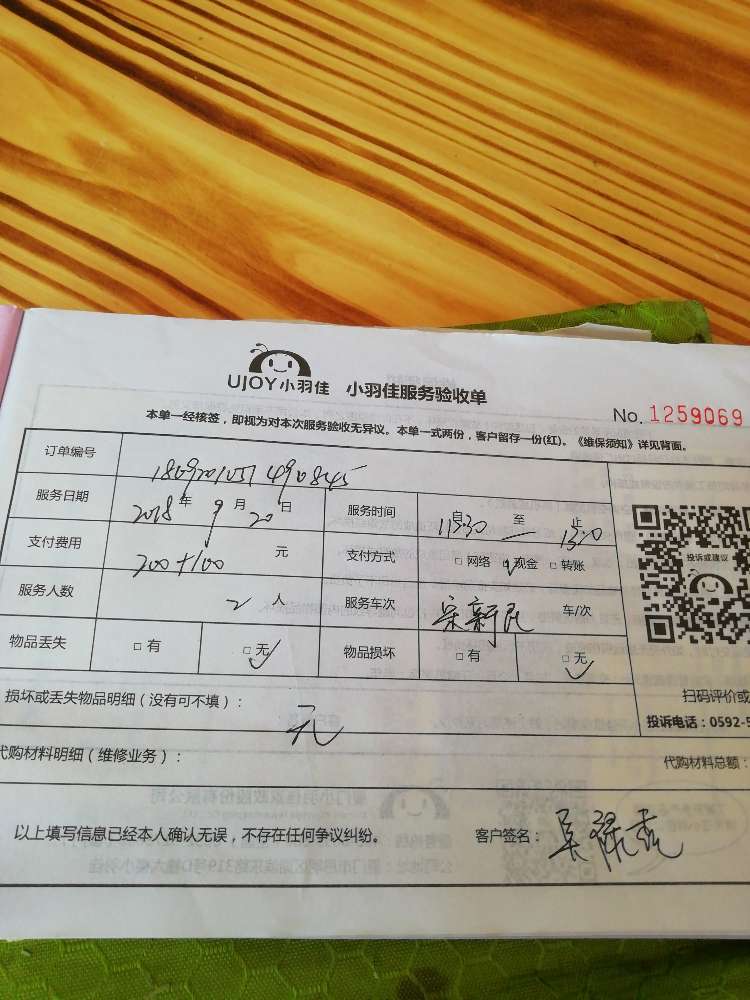 UJOY小羽佳 小羽佳服务验收单
No. 1259069
本单一经核签，即视为对本次服务验收无异议。本单一式两份，客户留存一份(红)。《维保须知》详见背面。
订单编号 18092010571490845
服务日期 2018年9月20日 服务时间 自 11:30 至 止 13:0
支付费用 200+100 元 支付方式 □网络 ☑现金 □转账
服务人数 2人 服务车次 宋新民 车/次
物品丢失 □有 □无✓ 物品损坏 □有 □无✓
投诉或建议
扫码评价或
投诉电话：0592-5
损坏或丢失物品明细（没有可不填）：
无
代购材料明细（维修业务）： 代购材料总额：
以上填写信息已经本人确认无误，不存在任何争议纠纷。 客户签名： 吴